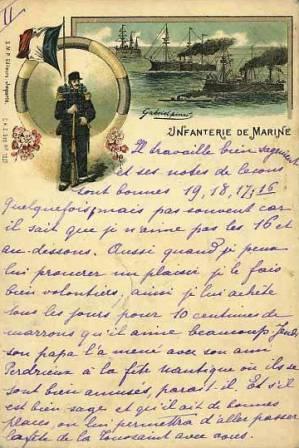 II
INFANTERIE DE MARINE
Il travaille bien
et ses notes de leçons
sont bonnes 19, 18, 17, 16
quelquefois, mais pas souvent car
il sait que je n'aime pas les 16 et
au-dessous. Aussi quand je peux
lui procurer un plaisir je le fais
bien volontiers, ainsi je lui achète
tous les jours pour 10 centimes de
marrons qu'il aime beaucoup Jeudi
son papa l'a mené avec son ami
Perdrieux à la fête nautique où ils se
sont bien amusés, paraît il. Et s'il
est bien sage et qu'il ait de bonnes
places, on lui permettra d'aller passer
la fête de la Toussaint avec